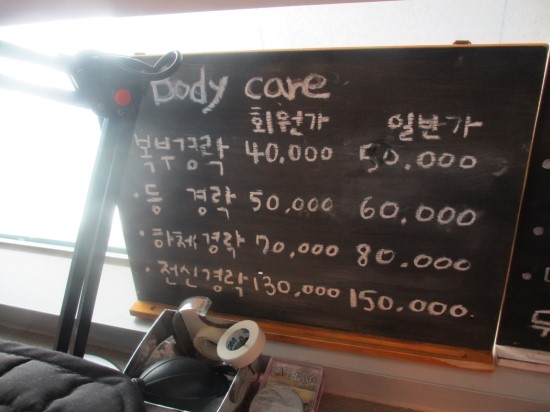 Body care
회원가 일반가
복부경락 40,000 50.000
· 등 경락 50,000 60,000
· 하체경락 70,000 80.000
· 전신경락 130,000 150.000